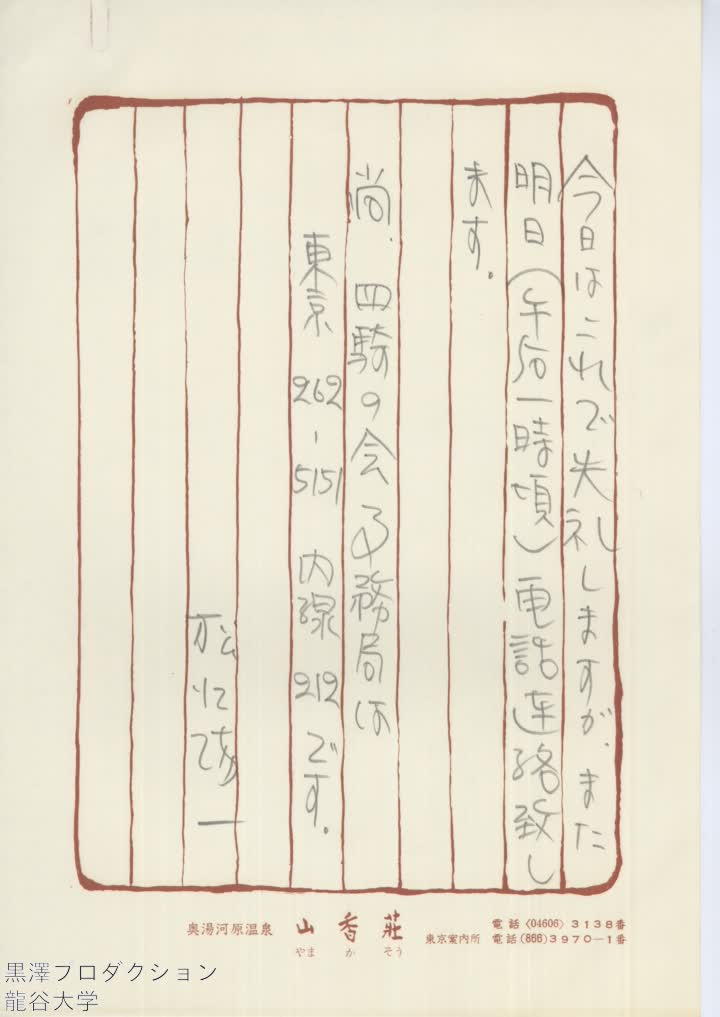 今日はこれで失礼しますが、また
明日（午后一時頃）電話連絡致し
ます。
尚、四騎の会事務局は
東京 262-5151 内線 212です。
松江陽一
奥湯河原温泉 山香荘 電話〈04606〉3138番
やまかそう 東京案内所 電話(866)3970―1番
黒澤プロダクション
龍谷大学